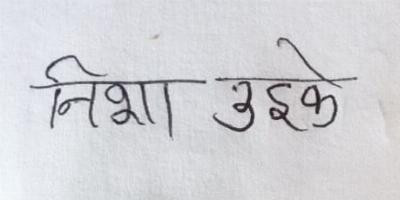 निशा उइके